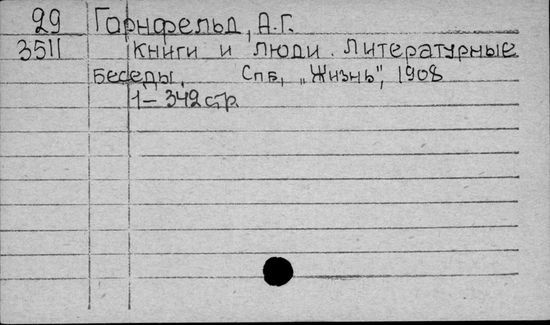 29 Горнфельд, А.Г.
3511 Книги и люди. Литературные
Беседы. Спб, „Жизнь", 1908
1-342 стр.